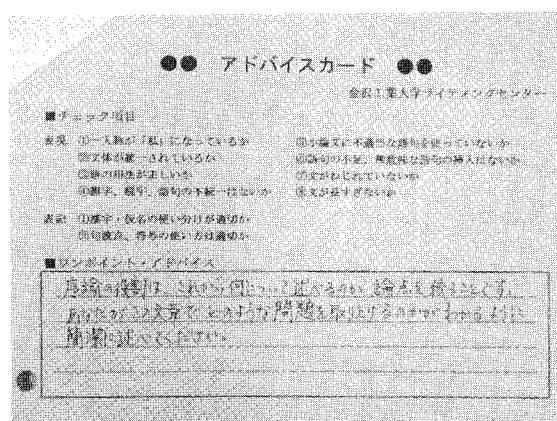 ●● アドバイスカード ●●
金沢工業大学ライティングセンター
■チェック項目
表現 ①一人称が「私」になっているか
②文体が統一されているか
③語の用法が正しいか
④誤字、脱字、語句の不統一はないか
⑤小論文に不適当な語句を使っていないか
⑥語句の不足、無意味な語句の挿入はないか
⑦文がねじれていないか
⑧文が長すぎないか
表記 ①漢字・仮名の使い分けが適切か
②句読点、符号の使い方は適切か
■ワンポイント・アドバイス
序論の役割は、これから何について述べるのか 論点を絞ることです。
あなたがこの文章で どのような問題を取り上げるのかがわかるように
簡潔に述べてください。